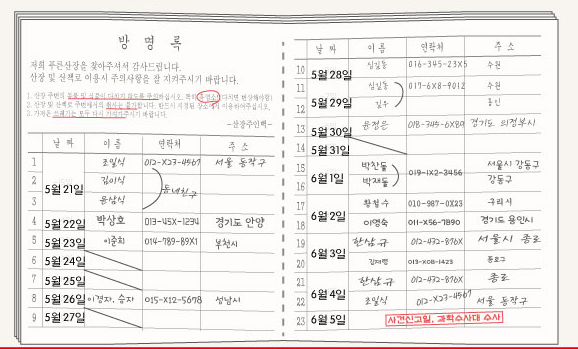 방 명 록
저희 푸른산장을 찾아주셔서 감사드립니다.
산장 및 산책로 이용시 주의사항을 잘 지켜주시기 바랍니다.
-산장주인백-
날 짜 이 름 연락처 주 소
1 조일식 012-X23-4567 서울 동작구
2 5월 21일 김이식 동네친구
3 윤삼식
4 5월 22일 박상호 013-45X-1234 경기도 안양
5 5월 23일 이준희 014-789-89X1 부천시
6 5월 24일
7 5월 25일
8 5월 26일 이경자, 승자 015-X12-5678 성남시
9 5월 27일
날 짜 이 름 연락처 주 소
10 5월 28일 심일동 016-345-23X5 수원
11 5월 29일 심일동 017-6X8-9012 수원
12 김수 용인
13 5월 30일 윤정은 018-345-6X89 경기도 의정부시
14 5월 31일
15 6월 1일 박찬둘 019-1X2-3456 서울시 강동구
16 박재둘 강동구
17 6월 2일 황철수 010-987-0X23 구리시
18 이영숙 011-X56-7890 경기도 용인시
19 6월 3일 한삼규 012-432-876X 서울시 종로
20 김태평 013-X08-1423 종로구
21 6월 4일 한삼규 012-432-876X 종로
22 조일식 012-X23-4567 서울 동작구
23 6월 5일 사건신고일, 과학수사대 수사